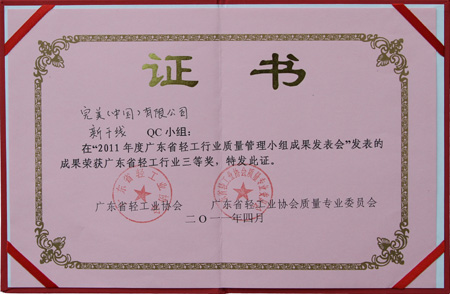 证 书
完美(中国)有限公司
新干线 QC 小组:
在“2011 年度广东省轻工行业质量管理小组成果发表会”发表的
成果荣获广东省轻工行业三等奖,特发此证。
广东省轻工业协会 广东省轻工业协会质量专业委员会
二〇一一年四月